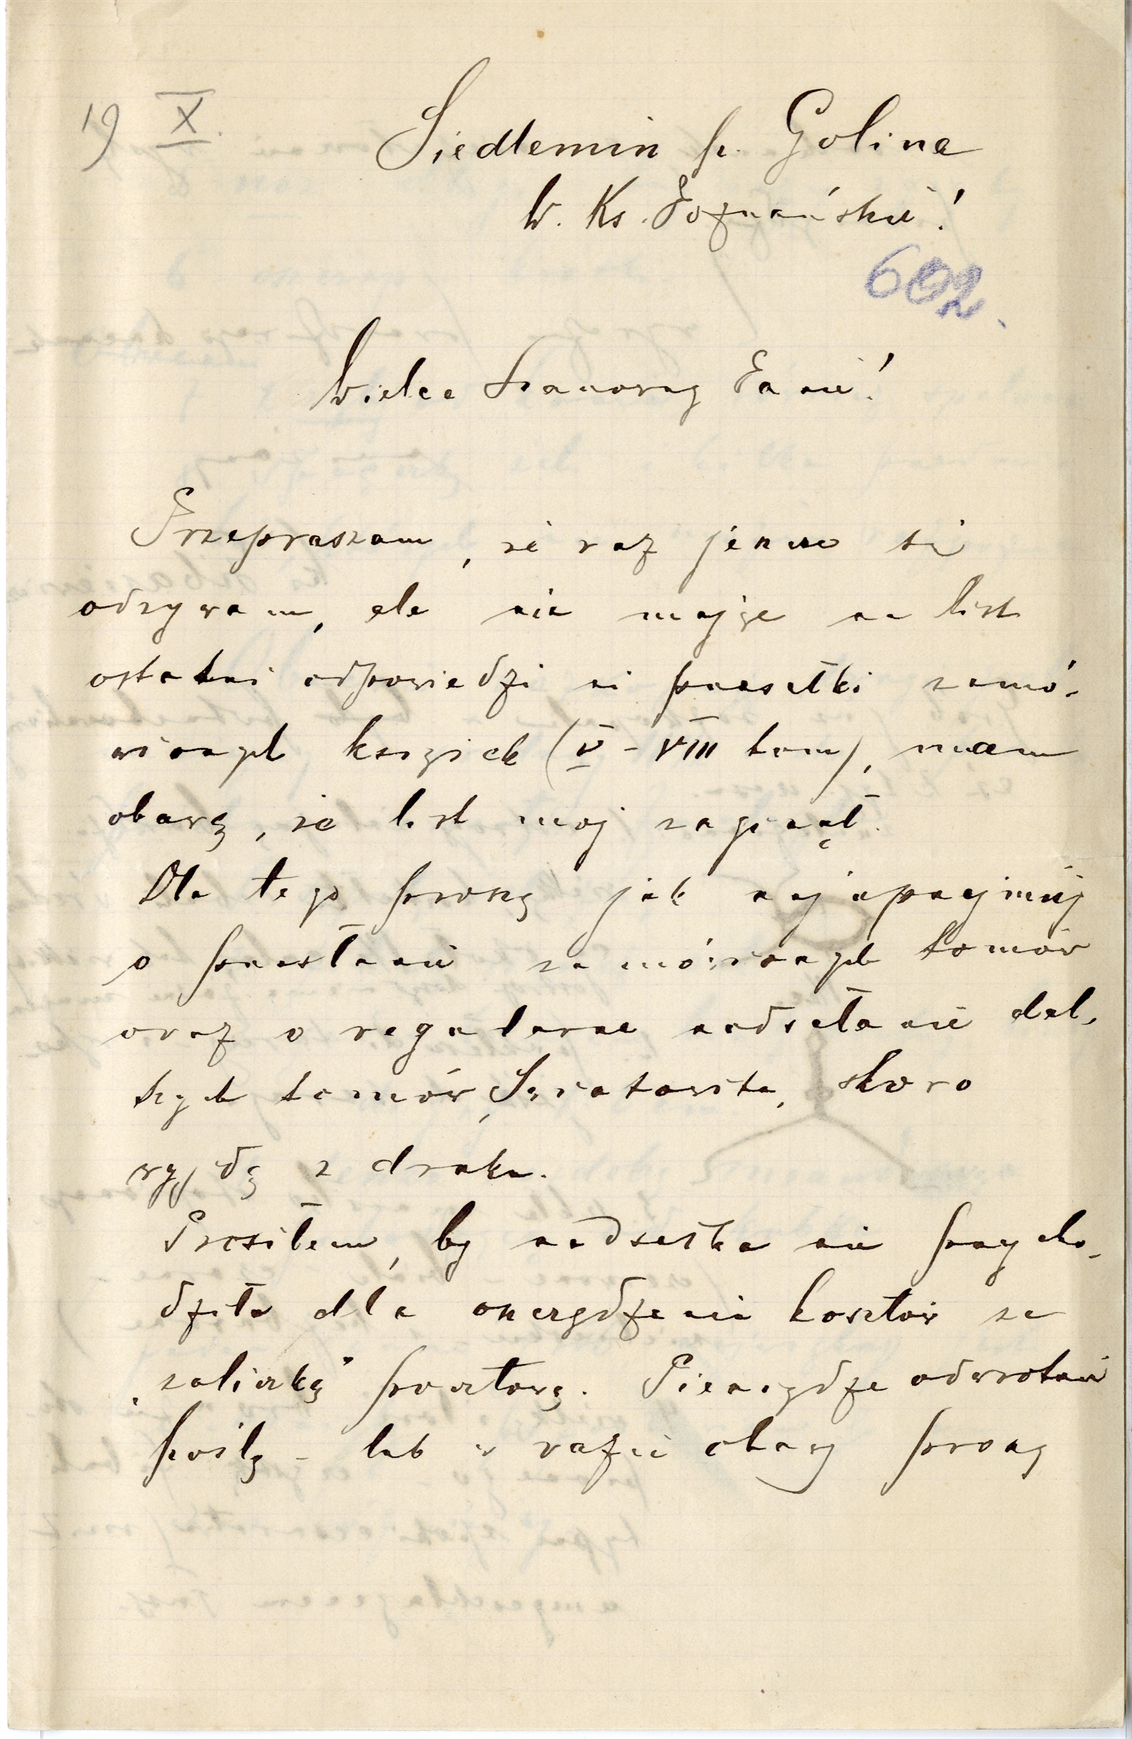 19 X.
Siedlemin p. Golina
W. Ks. Poznańskie!
602.
Wielce Szanowny Panie!
Przepraszam, że raz jeszcze się
odzywam, ale nie mając na list
ostatni odpowiedzi ni przesełki zamó-
wionych książek (V – VIII tom), mam
obawę, że list moj zaginął.
Dla tego proszę jak najuprzejmiej
o przesłanie zamówionych tomów
oraz o regularne nadsełanie dal-
szych tomów Światowita, skoro
wyjdą z druku.
Prosiłem, by nadsełka nie przycho-
dziła dla oszczędzenia kosztów za
„zaliczką” pocztową. Pieniądze odwrotnie
poślę – lub w razie obawy proszę